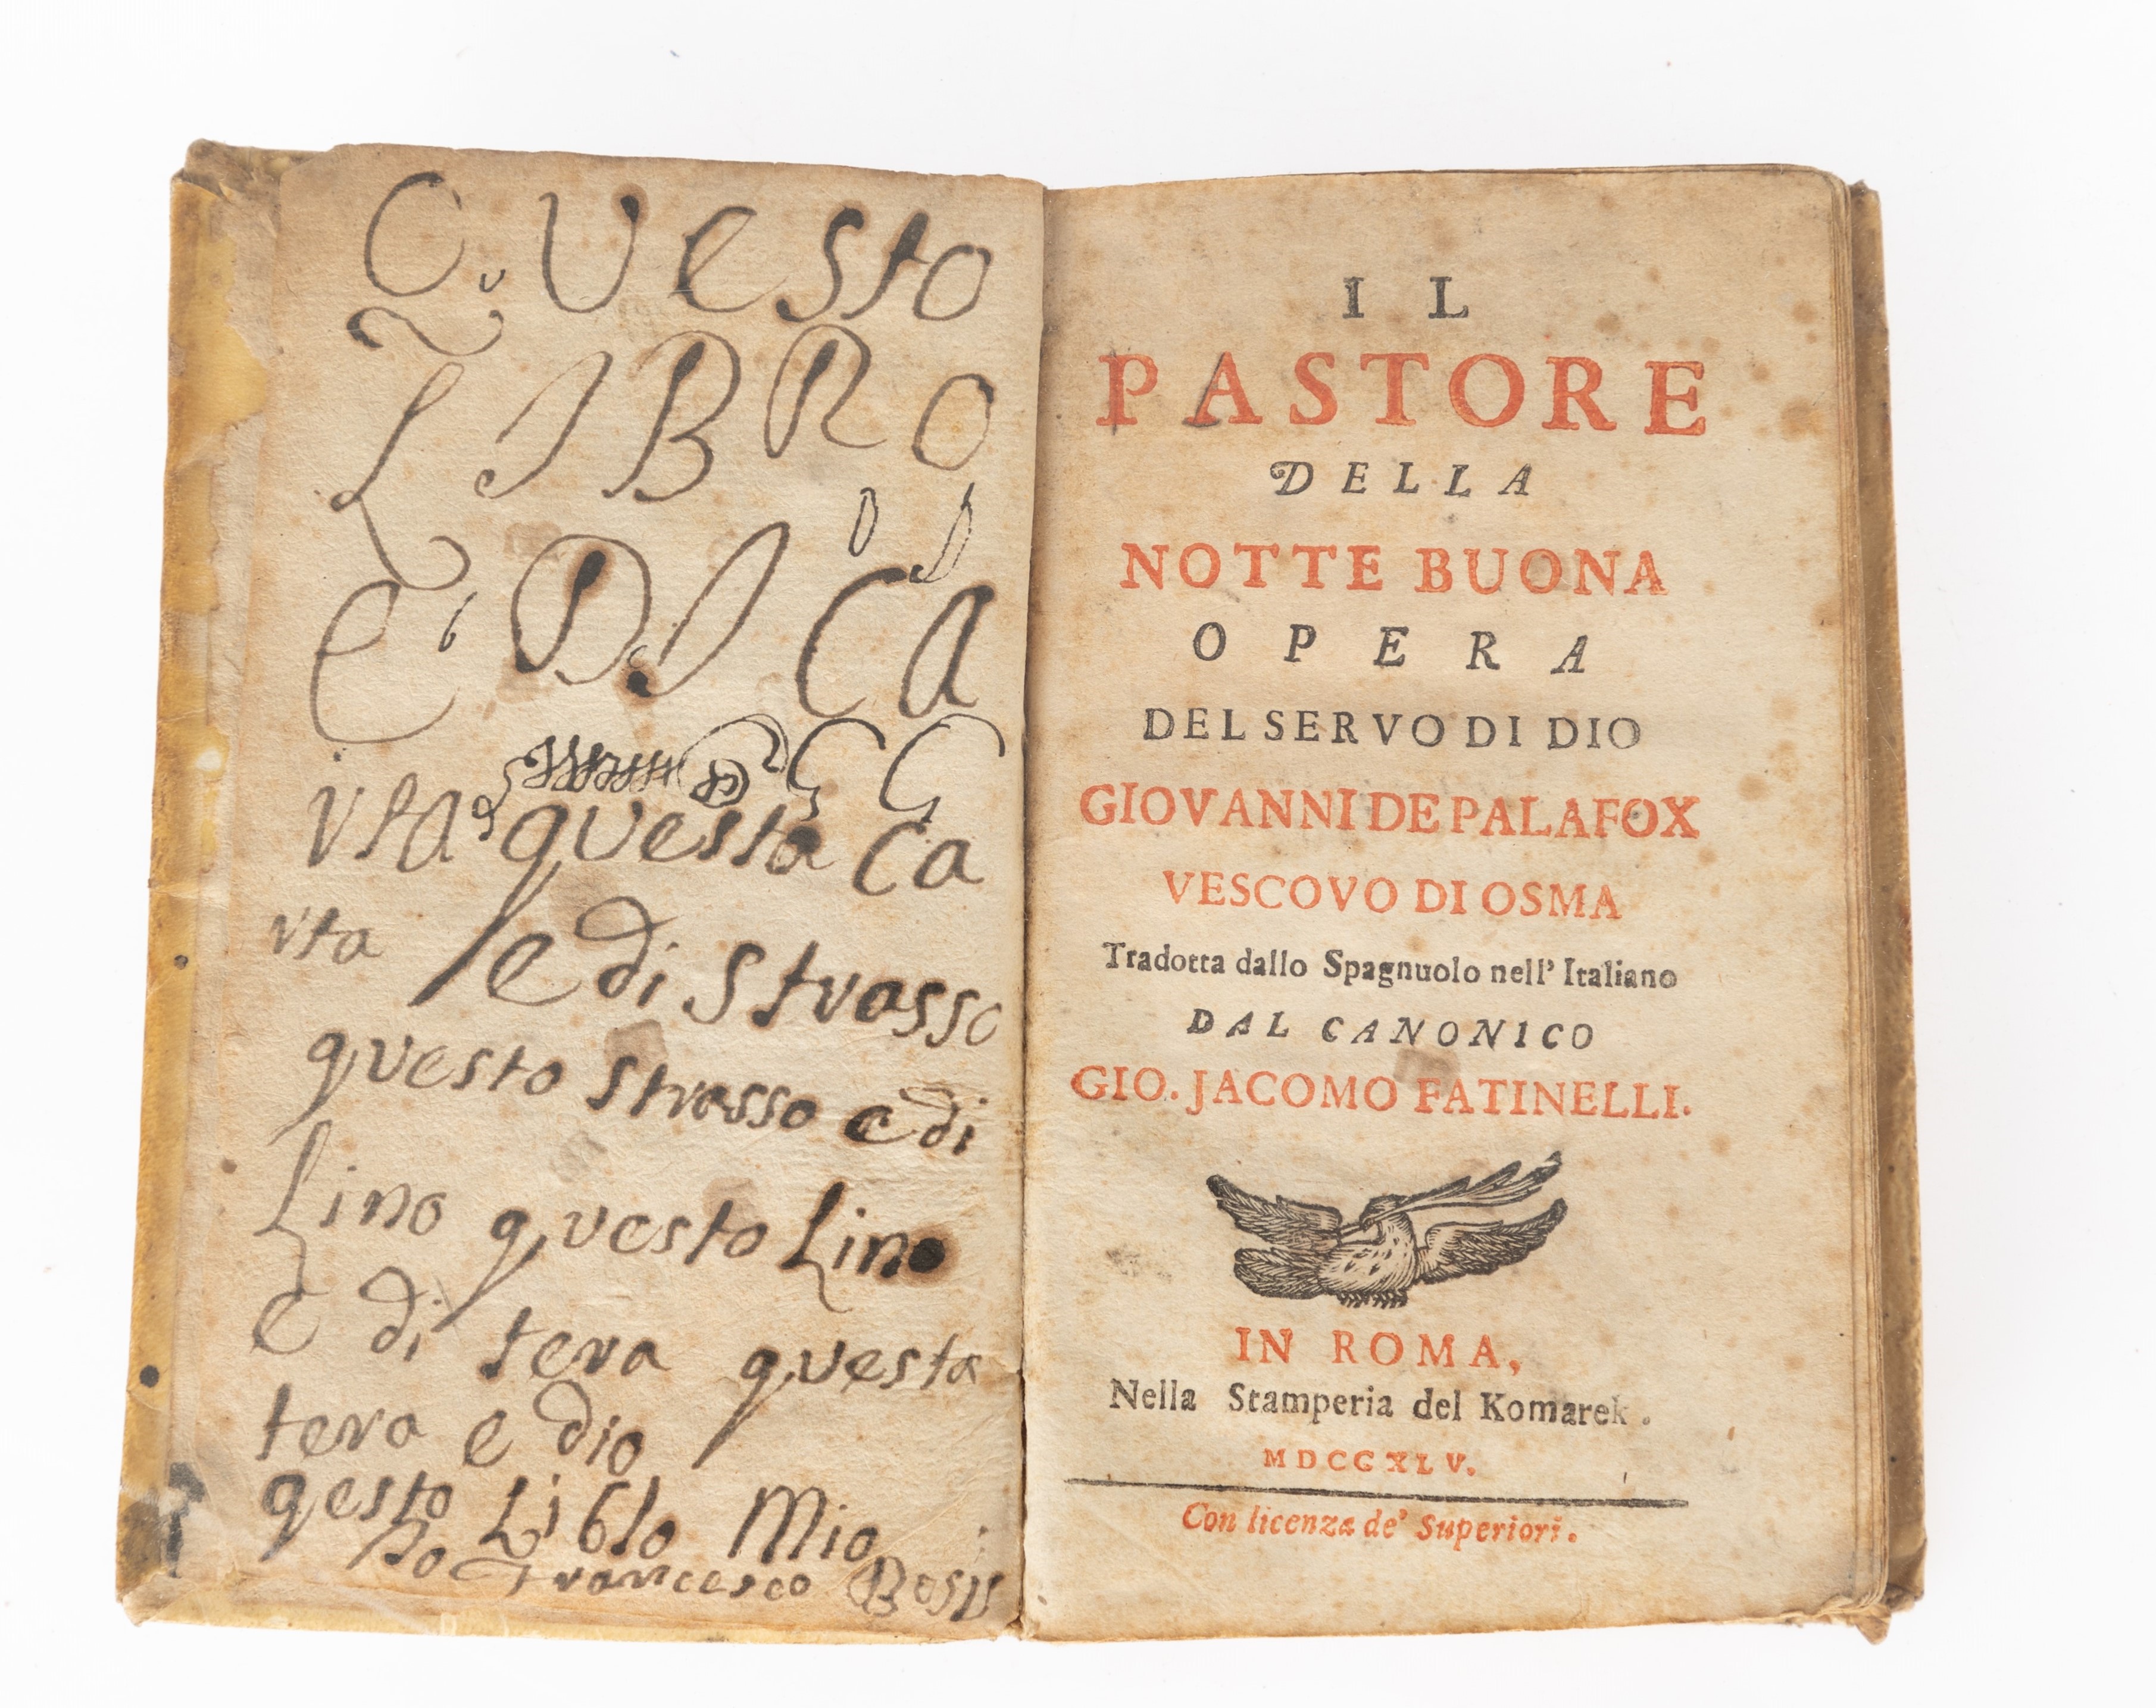 QVesto
LIBRO
E DI CA
rta questa Ca
rta e di strasso
questo strasso e di
Lino questo Lino
e di tera questa
tera e dio
qesto Liblo Mio
Io Francesco Bosis
IL
PASTORE
DELLA
NOTTE BUONA
OPERA
DEL SERVO DI DIO
GIOVANNI DE PALAFOX
VESCOVO DI OSMA
Tradotta dallo Spagnuolo nell' Italiano
DAL CANONICO
GIO. JACOMO FATINELLI.
IN ROMA,
Nella Stamperia del Komarek.
MDCCXLV.
Con licenza de' Superiori.